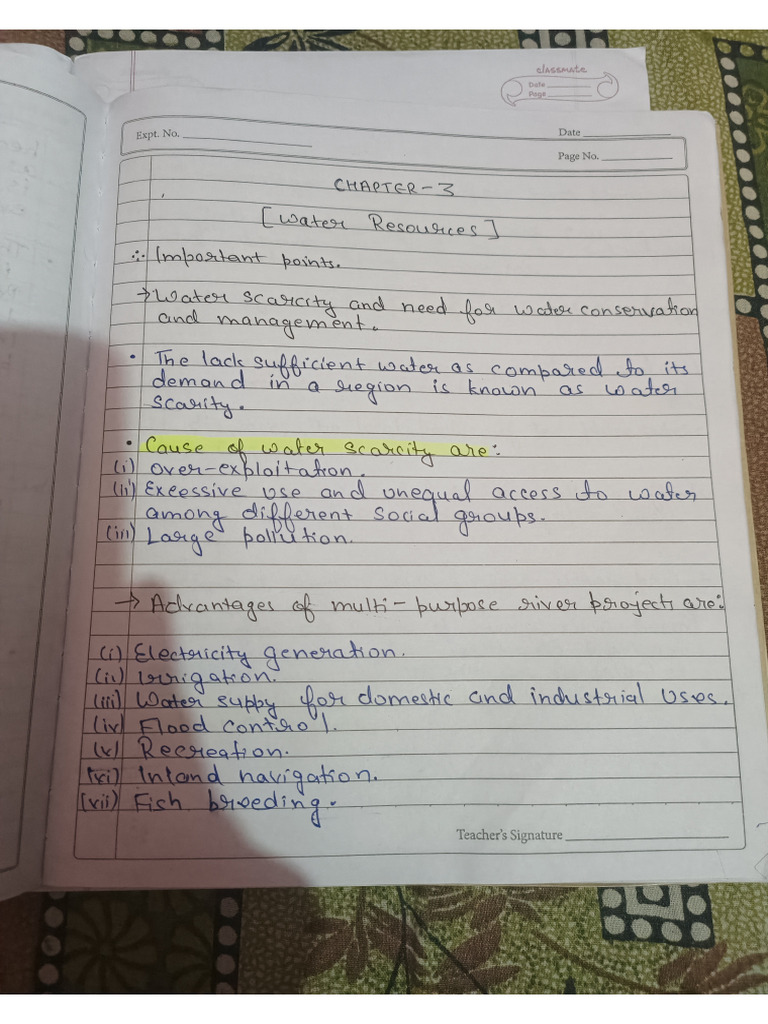 classmate
Date
Page
Expt. No.
Date
Page No.
CHAPTER-3
[Water Resources]
∴ Important points.
→ Water scarcity and need for water conservation
and management.
• The lack sufficient water as compared to its
demand in a region is known as water
scarity.
• Cause of water scarcity are:
(i) over-exploitation.
(ii) Excessive use and unequal access to water
among different social groups.
(iii) Large pollution.
→ Advantages of multi-purpose river project are:
(i) Electricity generation.
(ii) Irrigation.
(iii) Water suppy for domestic and industrial uses.
(iv) Flood control.
(v) Recreation.
(vi) Inland navigation.
(vii) Fish breeding.
Teacher's Signature